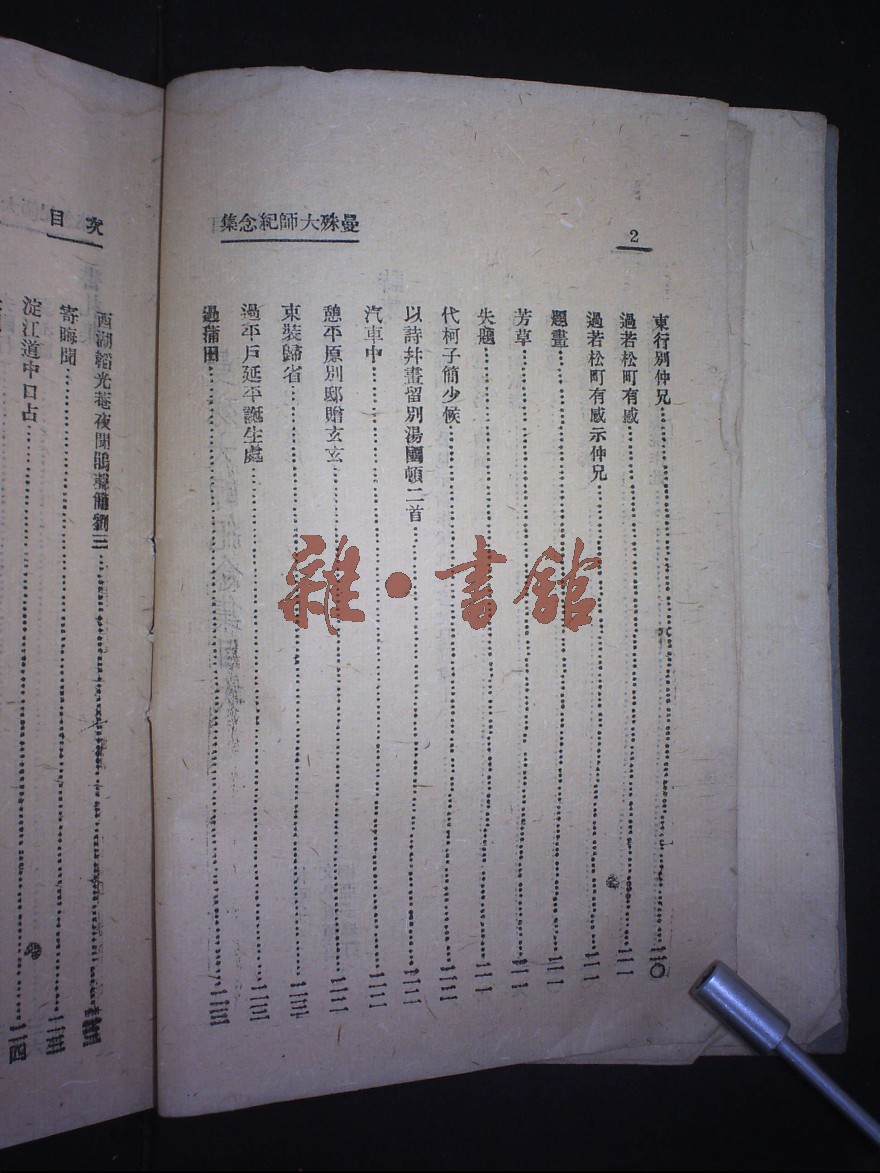 2
曼殊大師紀念集
東行別仲兄……二〇
過若松町有感……二一
過若松町有感示仲兄……二一
題畫……二一
芳草……二一
失題……二一
代柯子簡少候……二二
以詩并畫留別湯國頓二首……二二
汽車中……二二
憩平原別邸贈玄玄……二二
束裝歸省……二三
過平戶延平誕生處……二三
過蒲田……二三
目次
西湖韜光菴夜聞鵑聲簡劉三……
寄晦聞……二三
淀江道中口占……二四
雜·書館